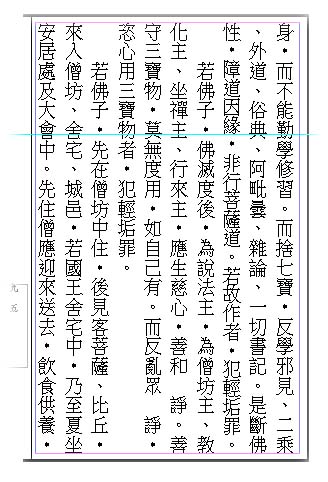 身‧而不能勤學修習。而捨七寶‧反學邪見、二乘
、外道、俗典、阿毗曇、雜論、一切書記。是斷佛
性‧障道因緣‧非行菩薩道。若故作者‧犯輕垢罪。
若佛子‧佛滅度後‧為說法主‧為僧坊主、教
化主、坐禪主、行來主‧應生慈心‧善和　諍。善
守三寶物‧莫無度用‧如自己有。而反亂眾　諍‧
恣心用三寶物者‧犯輕垢罪。
若佛子‧先在僧坊中住‧後見客菩薩、比丘‧
來入僧坊、舍宅、城邑‧若國王舍宅中‧乃至夏坐
安居處及大會中。先住僧應迎來送去‧飲食供養‧
九五